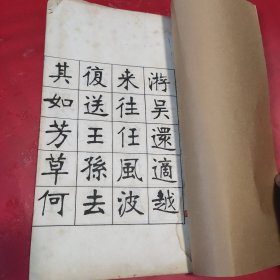 游吴還適越
来往任風波
復送王孫去
其如芳草何